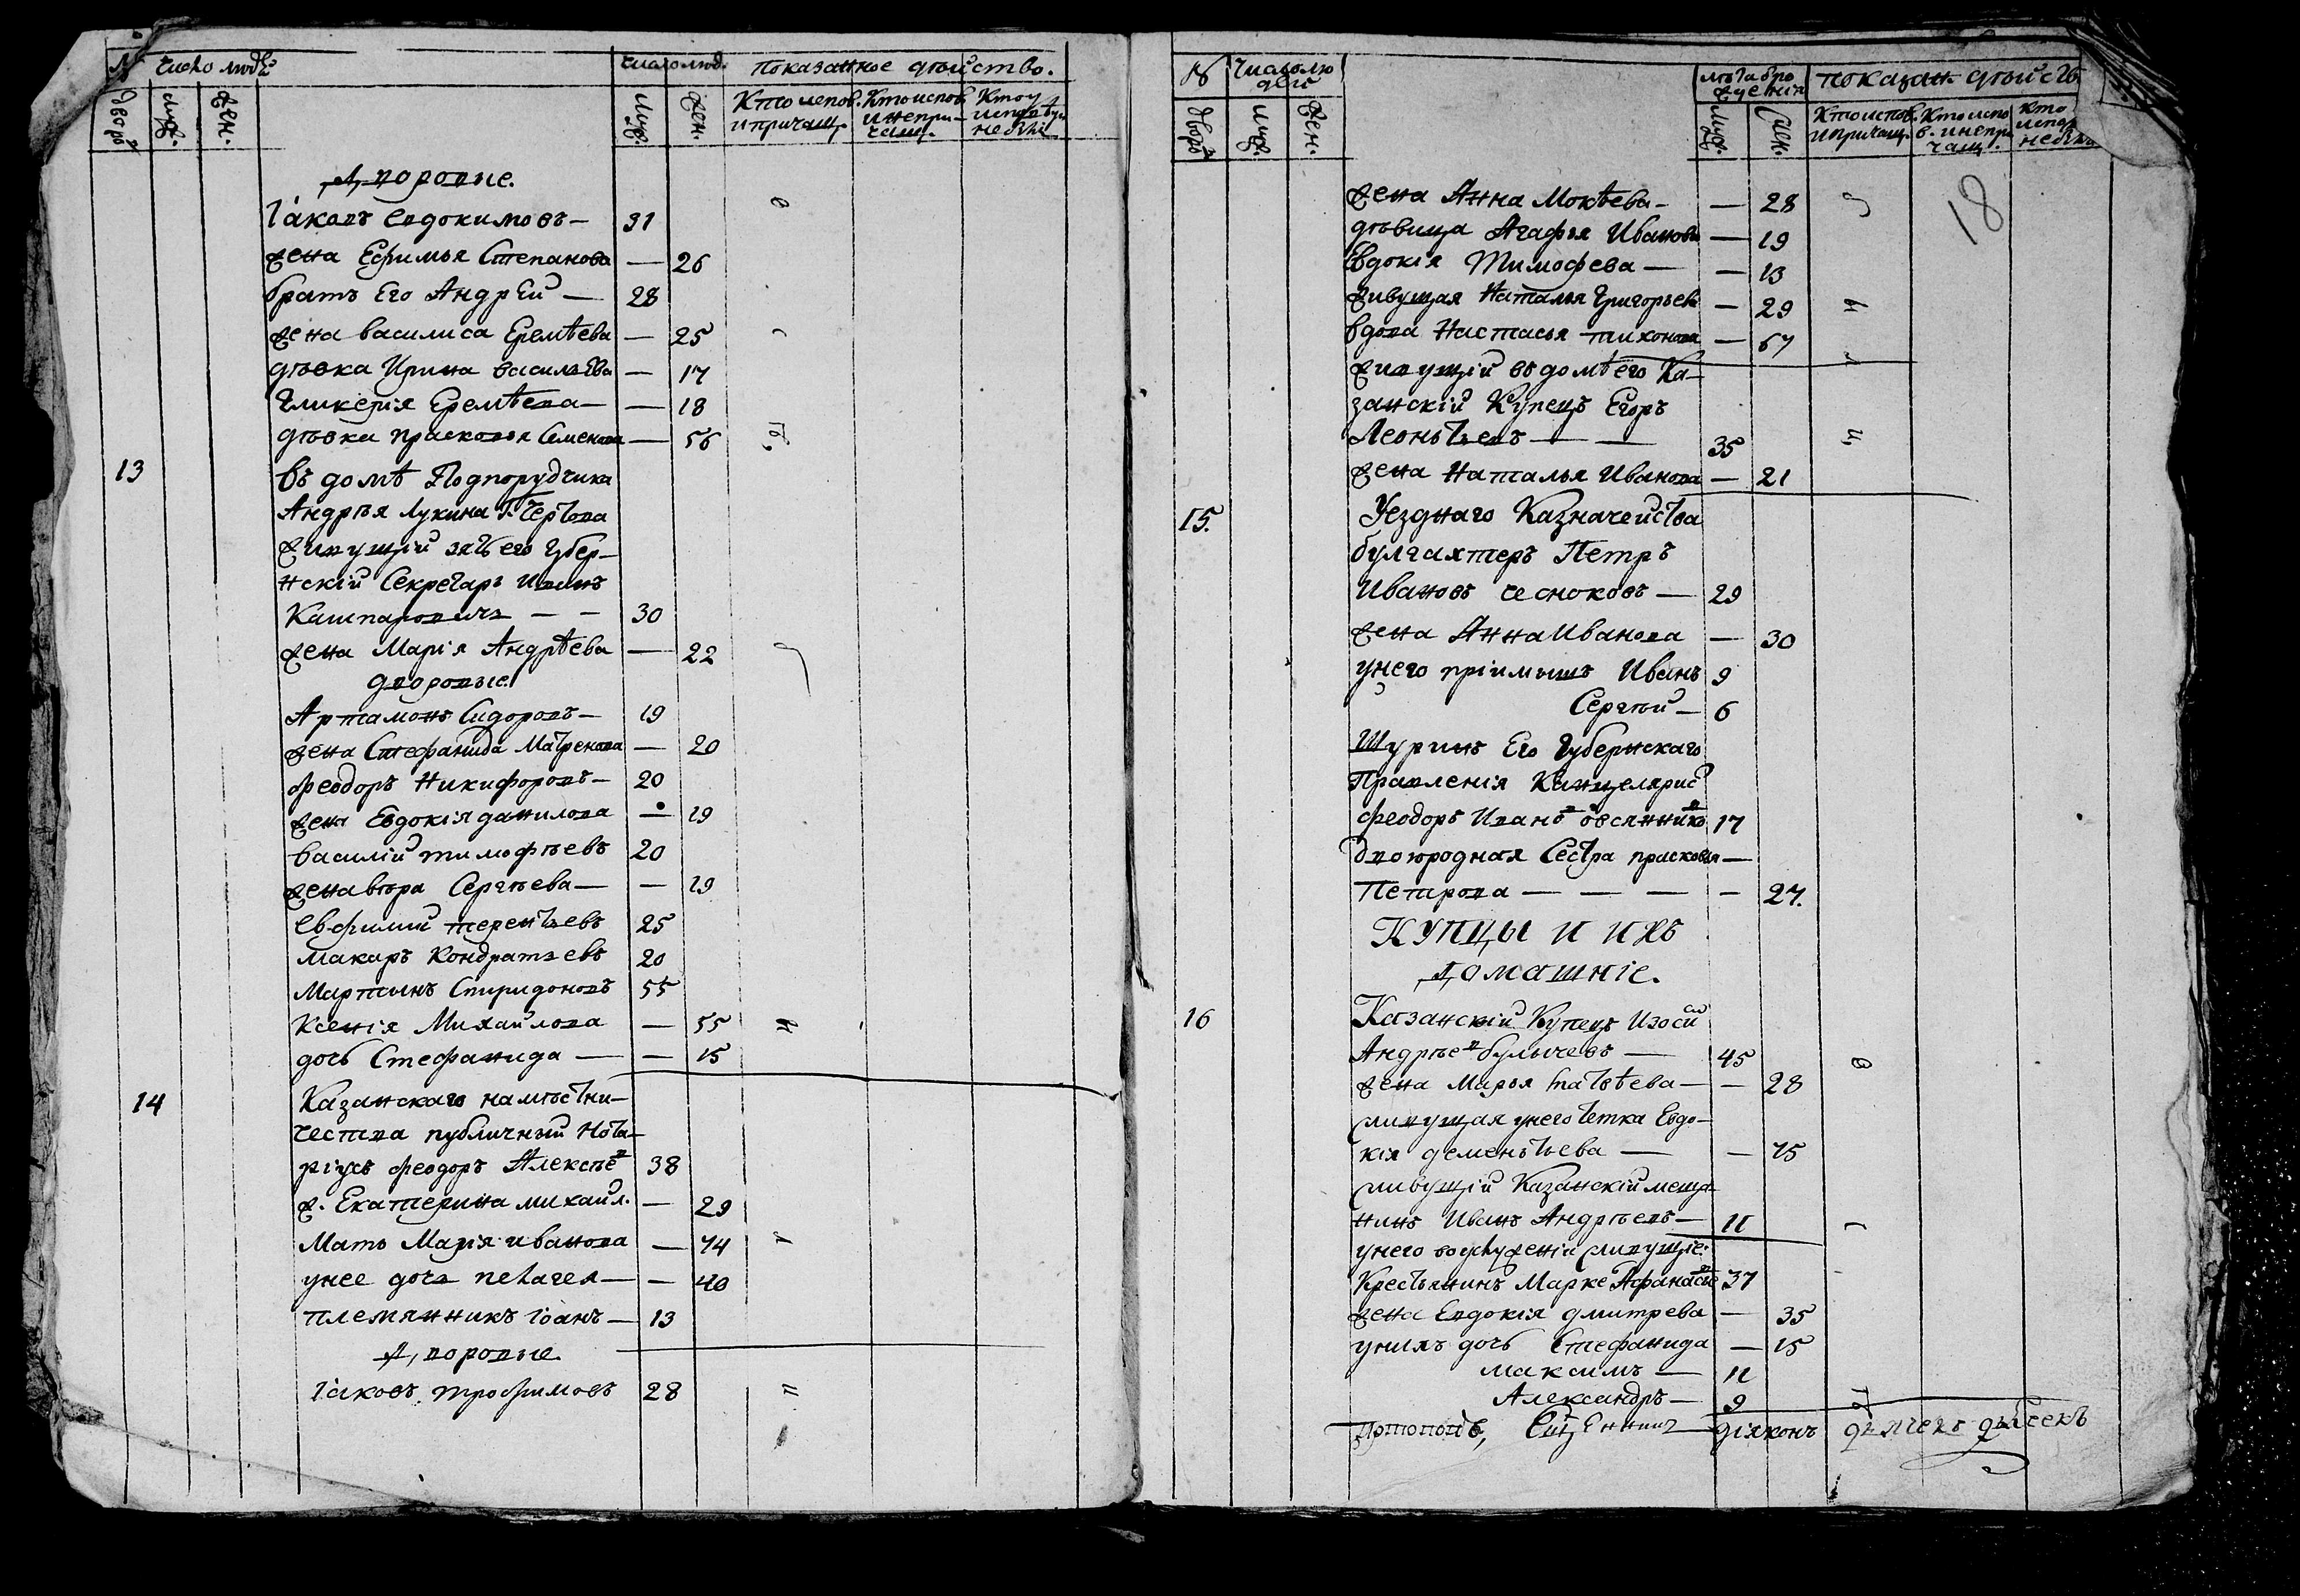 № число людѣ числолюд. показанное дѣйство.
дворъ муж. жен. муж. жен. Кто испов. и причащ. Кто испов. и непричащ. Кто у испов. не были
Дворовые.
Іаковъ Евдокимовъ — 31
жена Ефимья Степанова — 26
братъ Его Андрей — 28
жена василиса Еремѣева — 25
дѣвка Ирина василʼева — 17
Гликерія Еремѣева — — 18
дѣвка прасковья Семенова — 56
13 въ домѣ Подпорудчика
Андрѣя Лукина
живущій зять его Губер-
нскій Секретарь Иванъ
Кашпаровичъ — — 30
жена Марія Андрѣева — 22
дворовые
Артамонъ Сидоровъ — 19
жена Стефанида Матренова — 20
Феодоръ Никифоровъ — 20
жена Евдокія данилова — 19
василій тимофѣевъ 20
жена вѣра Сергѣева — — 19
евфимий терентьевъ 25
Макаръ Кондратьевъ 20
Мартынъ Спиридоновъ 55
Ксенія Михайлова — 55
дочь Стефанида — — 15
14 Казанскаго намѣстни-
чества публичный Нота-
ріусъ Феодоръ Алексѣев 38
ж. Екатерина михайл. — 29
Мать Марія иванова — 74
унее дочь пелагея — — 40
племянникъ Іоанъ — 13
Дворовые
Іаковъ трофимовъ 28
№ Числолюдей лѣта рожденія показан дѣйств
дворъ муж. жен. муж. жен. Кто испов. и причащ. Кто испов. и непричащ. Кто испов не были
18
жена Анна Мокѣева — — 28
дѣвица Агафья Иванова — 19
Евдокія Тимофева — — 13
живущая Наталья Григорьева — 29
вдова Настасья тихонова — 67
живущій въ домѣ его Ка-
занскій Купецъ Егоръ
Леонтьевъ — — 35
жена Наталья Иванова — 21
15. Уезднаго Казначейства
булгахтеръ Петръ
Ивановъ чесноковъ — 29
жена Анна Иванова — 30
унего пріимышъ Иванъ 9
Сергѣй — 6
Шуринъ Его Губернскаго
Правленія Канцелярист
Феодоръ Иванов овсянников 17
двоюродная Сестра прасковья —
Петрова — — — — 27.
КУПЦЫ И ИХЪ
Домашніе.
16 Казанскій Купецъ Изосий
Андрѣев булычевъ — 45
жена Марья матвѣева — — 28
живущая унего тетка Евдо-
кія дементьева — — 75
живущій Казанскій меща-
нинъ Иванъ Андрѣевъ — 11
унего живущіе
Крестьянинъ Марке Афанасьев 37
жена Евдокія дмитрева — 35
унихъ дочь Стефанида — 15
Максимъ — 11
Александръ — 9
Протопопъ, Сщенникъ діяконъ дьячекъ дьячекъ